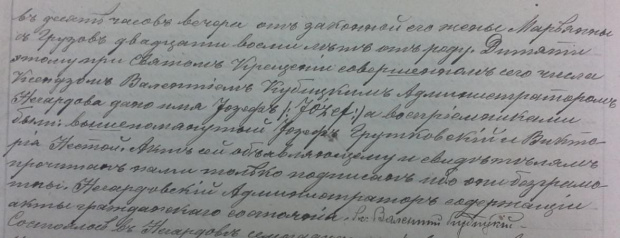 въ десять часовъ вечера отъ законной его жены Марьянны
съ Грузовъ двадцати восьми лѣтъ отъ роду. Дитяти
этому при Святомъ Крещеніи совершенномъ сего числа
Ксендзомъ Валентіемъ Кубицкимъ Администраторомъ
дано имя Іозефъ /:Józef:/ а воспріемниками
были: вышепомянутый Іозефъ Грутковскій и Викто-
рія Актъ сей объявляющему и свидѣтелямъ
прочитанъ нами только подписанъ ибо они безграмо-
тны. Администраторъ содержащій
акты гражданскаго состоянія Кс. Валентій Кубицкій
Состоялся въ